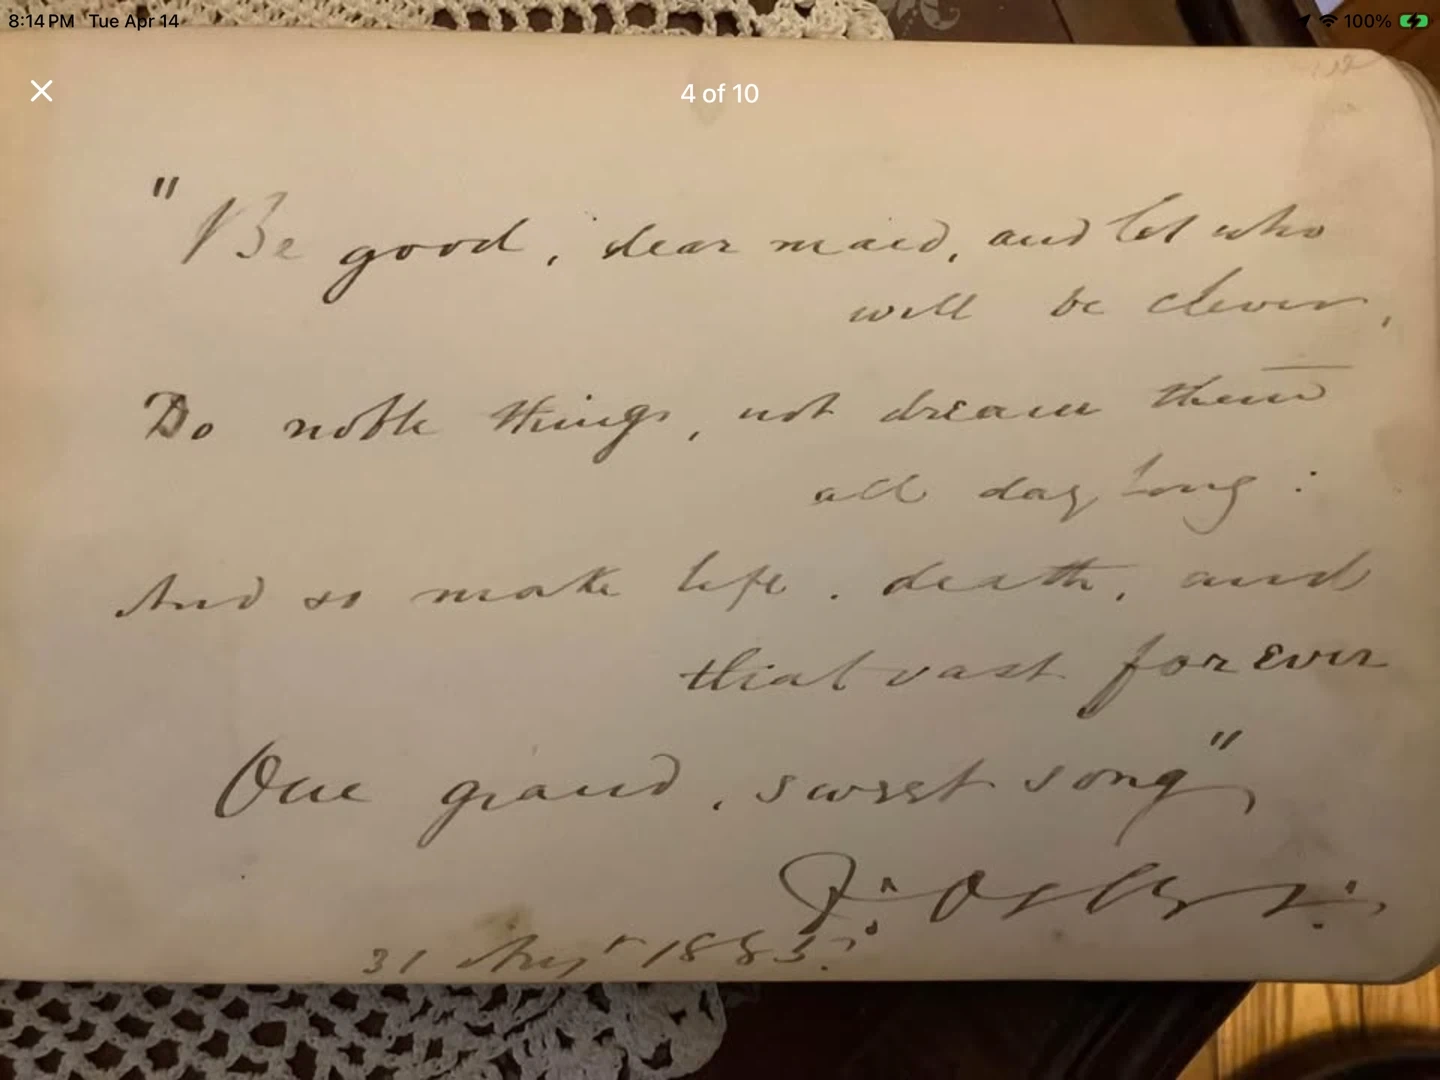 8:14 PM Tue Apr 14
100%
4 of 10
"Be good, dear maid, and let who
will be clever,
Do noble things, not dream them
all day long:
And so make life, death, and
that vast forever
One grand, sweet song"
31 Augt 1883.